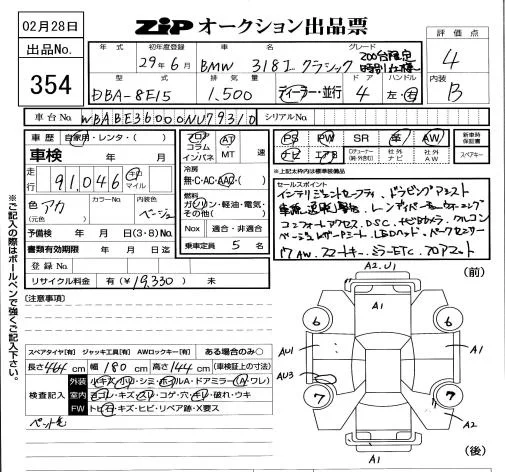 02月28日
ZiP オークション出品票
出品No.
354
年式
初年度登録
29年6月
車名
BMW 318I クラシック
グレード
200台限定
特別仕様
評価点
4
内装
B
型式
DBA-8E15
排気量
1,500
ディーラー・並行
ドア
4
ハンドル
左・右
車台No.
WBABE36000NU79310
シリアルNo.
車歴
自家用・レンタ・( )
車検
年 月
走行
91,046
km
マイル
色 アカ
(元色)
カラーNo.
内装色
ベージュ
予備検 年 月 日(3・8)No.
書類有効期限 年 月 日迄
登録No.
リサイクル料金 有(¥19,330) 未
フロア
コラム
インパネ
AT
MT
速
冷房
無・C・AC・AAC・( )
燃料
ガソリン・軽油・電気・
その他( )
Nox 適合・非適合
乗車定員 5 名
PS PW SR 革 AW
ナビ エアB
社外
ナビ
社外
AW
新車時
保証書
スペアキー
※上記エ枠内は標準装備品
セールスポイント
インテリジェントセーフティ、ドライビングアシスト
車線逸脱警告、レーンディパーチャーウォーニング
コンフォートアクセス、DSC、ナビカメラ、クルコン
ベージュレザーシート、LEDヘッド、パークセンサー
17AW、スマートキー、ミラーETC、フロアマット
[注意事項]
スペアタイヤ[有] ジャッキ工具[有] AWロックキー[有] ある場合のみ○
長さ 464 cm 幅 180 cm 高さ 144 cm (車検証上の寸法)
検査記入
外装 小キズ・小凹・シミ・ホイルA・ドアミラー(A・ワレ)
室内 ヨゴレ・キズ・スレ・コゲ・穴・キレ・破れ・ウキ
FW トビ石・キズ・ヒビ・リペア跡・X要ス
ペット毛
※ご記入の際はボールペンで強くご記入下さい。
A2.U1
(前)
A1
6
6
AU1
A1
A1
AU3
7
7
A2
A1
(後)